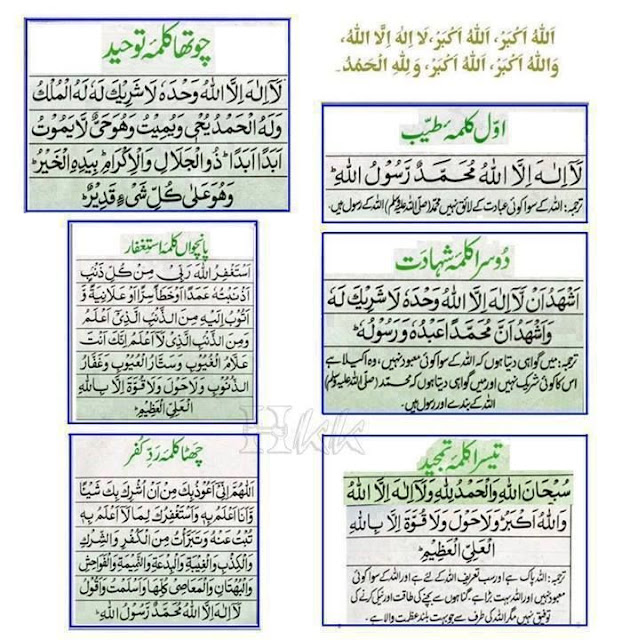 اَللّٰهُ اَكْبَرُ، اَللّٰهُ اَكْبَرُ، لَا اِلٰهَ اِلَّا اللّٰهُ،
وَاللّٰهُ اَكْبَرُ، اَللّٰهُ اَكْبَرُ، وَلِلّٰهِ الْحَمْدُ۔
اوّل کلمہ طیّب
لَآ اِلٰهَ اِلَّا اللّٰهُ مُحَمَّدٌ رَّسُوْلُ اللّٰهِ ؕ
ترجمہ: اللہ کے سوا کوئی عبادت کے لائق نہیں محمد (صلی اللہ علیہ وسلم) اللہ کے رسول ہیں۔
دُوسرا کلمہ شہادت
اَشْهَدُ اَنْ لَّآ اِلٰهَ اِلَّا اللّٰهُ وَحْدَهٗ لَا شَرِيْكَ لَهٗ
وَاَشْهَدُ اَنَّ مُحَمَّدًا عَبْدُهٗ وَرَسُوْلُهٗ ؕ
ترجمہ: میں گواہی دیتا ہوں کہ اللہ کے سوا کوئی معبود نہیں، وہ اکیلا ہے
اس کا کوئی شریک نہیں اور میں گواہی دیتا ہوں کہ محمد (صلی اللہ علیہ وسلم)
اللہ کے بندے اور رسول ہیں۔
تیسرا کلمہ تمجید
سُبْحَانَ اللّٰهِ وَالْحَمْدُ لِلّٰهِ وَلَآ اِلٰهَ اِلَّا اللّٰهُ
وَاللّٰهُ اَكْبَرُ وَلَا حَوْلَ وَلَا قُوَّةَ اِلَّا بِاللّٰهِ
الْعَلِيِّ الْعَظِيْمِ ؕ
ترجمہ: اللہ پاک ہے اور سب تعریف اللہ کے لئے ہے اور اللہ کے سوا کوئی
معبود نہیں اور اللہ بہت بڑا ہے گناہوں سے بچنے کی طاقت اور نیکی کرنے کی
توفیق نہیں مگر اللہ کی طرف سے جو بہت بلند عظمت والا ہے۔
چوتھا کلمہ توحید
لَآ اِلٰهَ اِلَّا اللّٰهُ وَحْدَهٗ لَا شَرِيْكَ لَهٗ لَهُ الْمُلْكُ
وَلَهُ الْحَمْدُ يُحْيٖ وَيُمِيْتُ وَهُوَ حَيٌّ لَّا يَمُوْتُ
اَبَدًا اَبَدًا ؕ ذُو الْجَلَالِ وَالْاِكْرَامِ ؕ بِيَدِهِ الْخَيْرُ ؕ
وَهُوَ عَلٰى كُلِّ شَیْءٍ قَدِيْرٌ ؕ
پانچواں کلمہ استغفار
اَسْتَغْفِرُ اللّٰهَ رَبِّيْ مِنْ كُلِّ ذَنْۢبٍ
اَذْنَبْتُهٗ عَمَدًا اَوْ خَطَأً سِرًّا اَوْ عَلَانِيَةً وَّ
اَتُوْبُ اِلَيْهِ مِنَ الذَّنْۢبِ الَّذِيْٓ اَعْلَمُ
وَمِنَ الذَّنْۢبِ الَّذِيْ لَآ اَعْلَمُ اِنَّكَ اَنْتَ
عَلَّامُ الْغُيُوْبِ وَسَتَّارُ الْعُيُوْبِ وَغَفَّارُ
الذُّنُوْبِ وَلَا حَوْلَ وَلَا قُوَّةَ اِلَّا بِاللّٰهِ
الْعَلِيِّ الْعَظِيْمِ ؕ
چھٹا کلمہ ردِّ کفر
اَللّٰهُمَّ اِنِّيْٓ اَعُوْذُ بِكَ مِنْ اَنْ اُشْرِكَ بِكَ شَيْئًا
وَّاَنَا اَعْلَمُ بِهٖ وَاَسْتَغْفِرُكَ لِمَا لَآ اَعْلَمُ بِهٖ
تُبْتُ عَنْهُ وَتَبَرَّأْتُ مِنَ الْكُفْرِ وَالشِّرْكِ
وَالْكِذْبِ وَالْغِيْبَةِ وَالْبِدْعَةِ وَالنَّمِيْمَةِ وَالْفَوَاحِشِ
وَالْبُهْتَانِ وَالْمَعَاصِيْ كُلِّهَا وَاَسْلَمْتُ وَاَقُوْلُ
لَآ اِلٰهَ اِلَّا اللّٰهُ مُحَمَّدٌ رَّسُوْلُ اللّٰهِ ؕ
Hkk